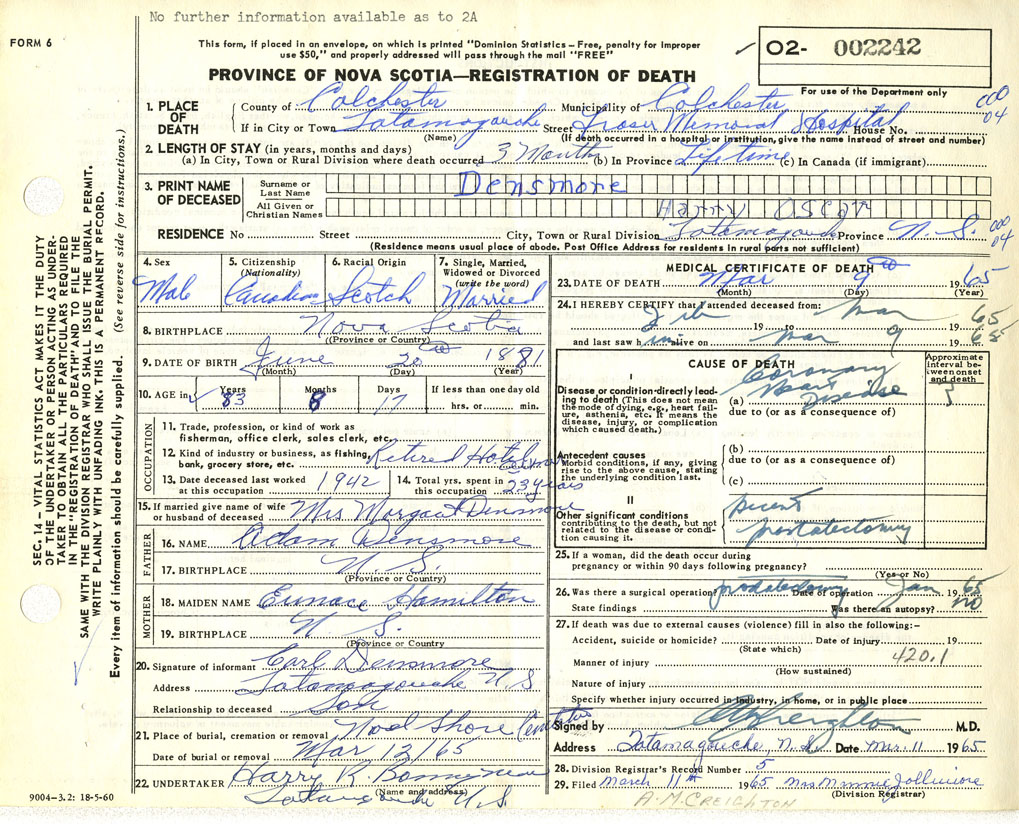 No further information available as to 2A
FORM 6
This form, if placed in an envelope, on which is printed "Dominion Statistics – Free, penalty for improper
use $50," and properly addressed will pass through the mail "FREE"
PROVINCE OF NOVA SCOTIA—REGISTRATION OF DEATH
02- 002242
For use of the Department only
000
04
1. PLACE OF DEATH
County of Colchester Municipality of Colchester
If in City or Town Tatamagouche Street Fraser Memorial Hospital House No.
(Name) (If death occurred in a hospital or institution, give the name instead of street and number)
2. LENGTH OF STAY (in years, months and days)
(a) In City, Town or Rural Division where death occurred 3 Months (b) In Province Lifetime (c) In Canada (if immigrant)
3. PRINT NAME OF DECEASED
Surname or Last Name Densmore
All Given or Christian Names Harry Oscar
RESIDENCE No Street City, Town or Rural Division Tatamagouche Province N.S.
000
04
(Residence means usual place of abode. Post Office Address for residents in rural parts not sufficient)
4. Sex
Male
5. Citizenship
(Nationality)
Canadian
6. Racial Origin
Scotch
7. Single, Married,
Widowed or Divorced
(write the word)
Married
8. BIRTHPLACE Nova Scotia
(Province or Country)
9. DATE OF BIRTH June 20 1881
(Month) (Day) (Year)
10. AGE in
Years 83
Months 8
Days 17
If less than one day old
hrs. or min.
OCCUPATION
11. Trade, profession, or kind of work as
fisherman, office clerk, sales clerk, etc.
12. Kind of industry or business, as fishing,
bank, grocery store, etc. Retired
13. Date deceased last worked
at this occupation 1942
14. Total yrs. spent in
this occupation 23 years
15. If married give name of wife
or husband of deceased Mrs Margaret Densmore
FATHER
16. NAME Adam Densmore
17. BIRTHPLACE N.S.
(Province or Country)
MOTHER
18. MAIDEN NAME Eunace Hamilton
19. BIRTHPLACE N.S.
(Province or Country)
20. Signature of informant Carl Densmore
Address Tatamagouche N.S
Relationship to deceased Son
21. Place of burial, cremation or removal Noel Shore
Date of burial or removal Mar 12/65
22. UNDERTAKER Harry R.
(Name and address)
Tatamagouche N.S
MEDICAL CERTIFICATE OF DEATH
23. DATE OF DEATH Mar 9 1965
(Month) (Day) (Year)
24. I HEREBY CERTIFY that I attended deceased from:
Feb 19 to Mar 65
and last saw him alive on Mar 9 1965
CAUSE OF DEATH
Approximate interval between onset and death
I
Disease or condition directly leading to death (This does not
mean the mode of dying, e.g., heart failure, asthenia, etc. It means the
disease, injury, or complication
which caused death.)
Coronary
Heart
(a) Disease
due to (or as a consequence of)
Antecedent causes
Morbid conditions, if any, giving
rise to the above cause, stating
the underlying condition last.
(b)
due to (or as a consequence of)
(c)
II
Other significant conditions
contributing to the death, but not
related to the disease or condition causing it.
recent
prostatectomy
25. If a woman, did the death occur during
pregnancy or within 90 days following pregnancy?
(Yes or No)
26. Was there a surgical operation? prostatectomy Date of operation Jan 1965
State findings Was there an autopsy? no
27. If death was due to external causes (violence) fill in also the following:–
Accident, suicide or homicide? Date of injury 19
(State which)
420.1
Manner of injury
(How sustained)
Nature of injury
Specify whether injury occurred in industry, in home, or in public place
Signed by M.D.
Address Tatamagouche, N.S. Date Mar. 11 1965
28. Division Registrar's Record Number 5
29. Filed March 11th 1965 Mrs Minnie Jollimore
(Division Registrar)
A.M. CREIGHTON
9004–3.2: 18-5-60
SEC. 14 – VITAL STATISTICS ACT MAKES IT THE DUTY
OF THE UNDERTAKER OR PERSON ACTING AS UNDERTAKER TO OBTAIN ALL THE PARTICULARS REQUIRED
IN THE "REGISTRATION OF DEATH" AND TO FILE THE
SAME WITH THE DIVISION REGISTRAR WHO SHALL ISSUE THE BURIAL PERMIT.
WRITE PLAINLY WITH UNFADING INK. THIS IS A PERMANENT RECORD.
Every item of information should be carefully supplied. (See reverse side for instructions.)